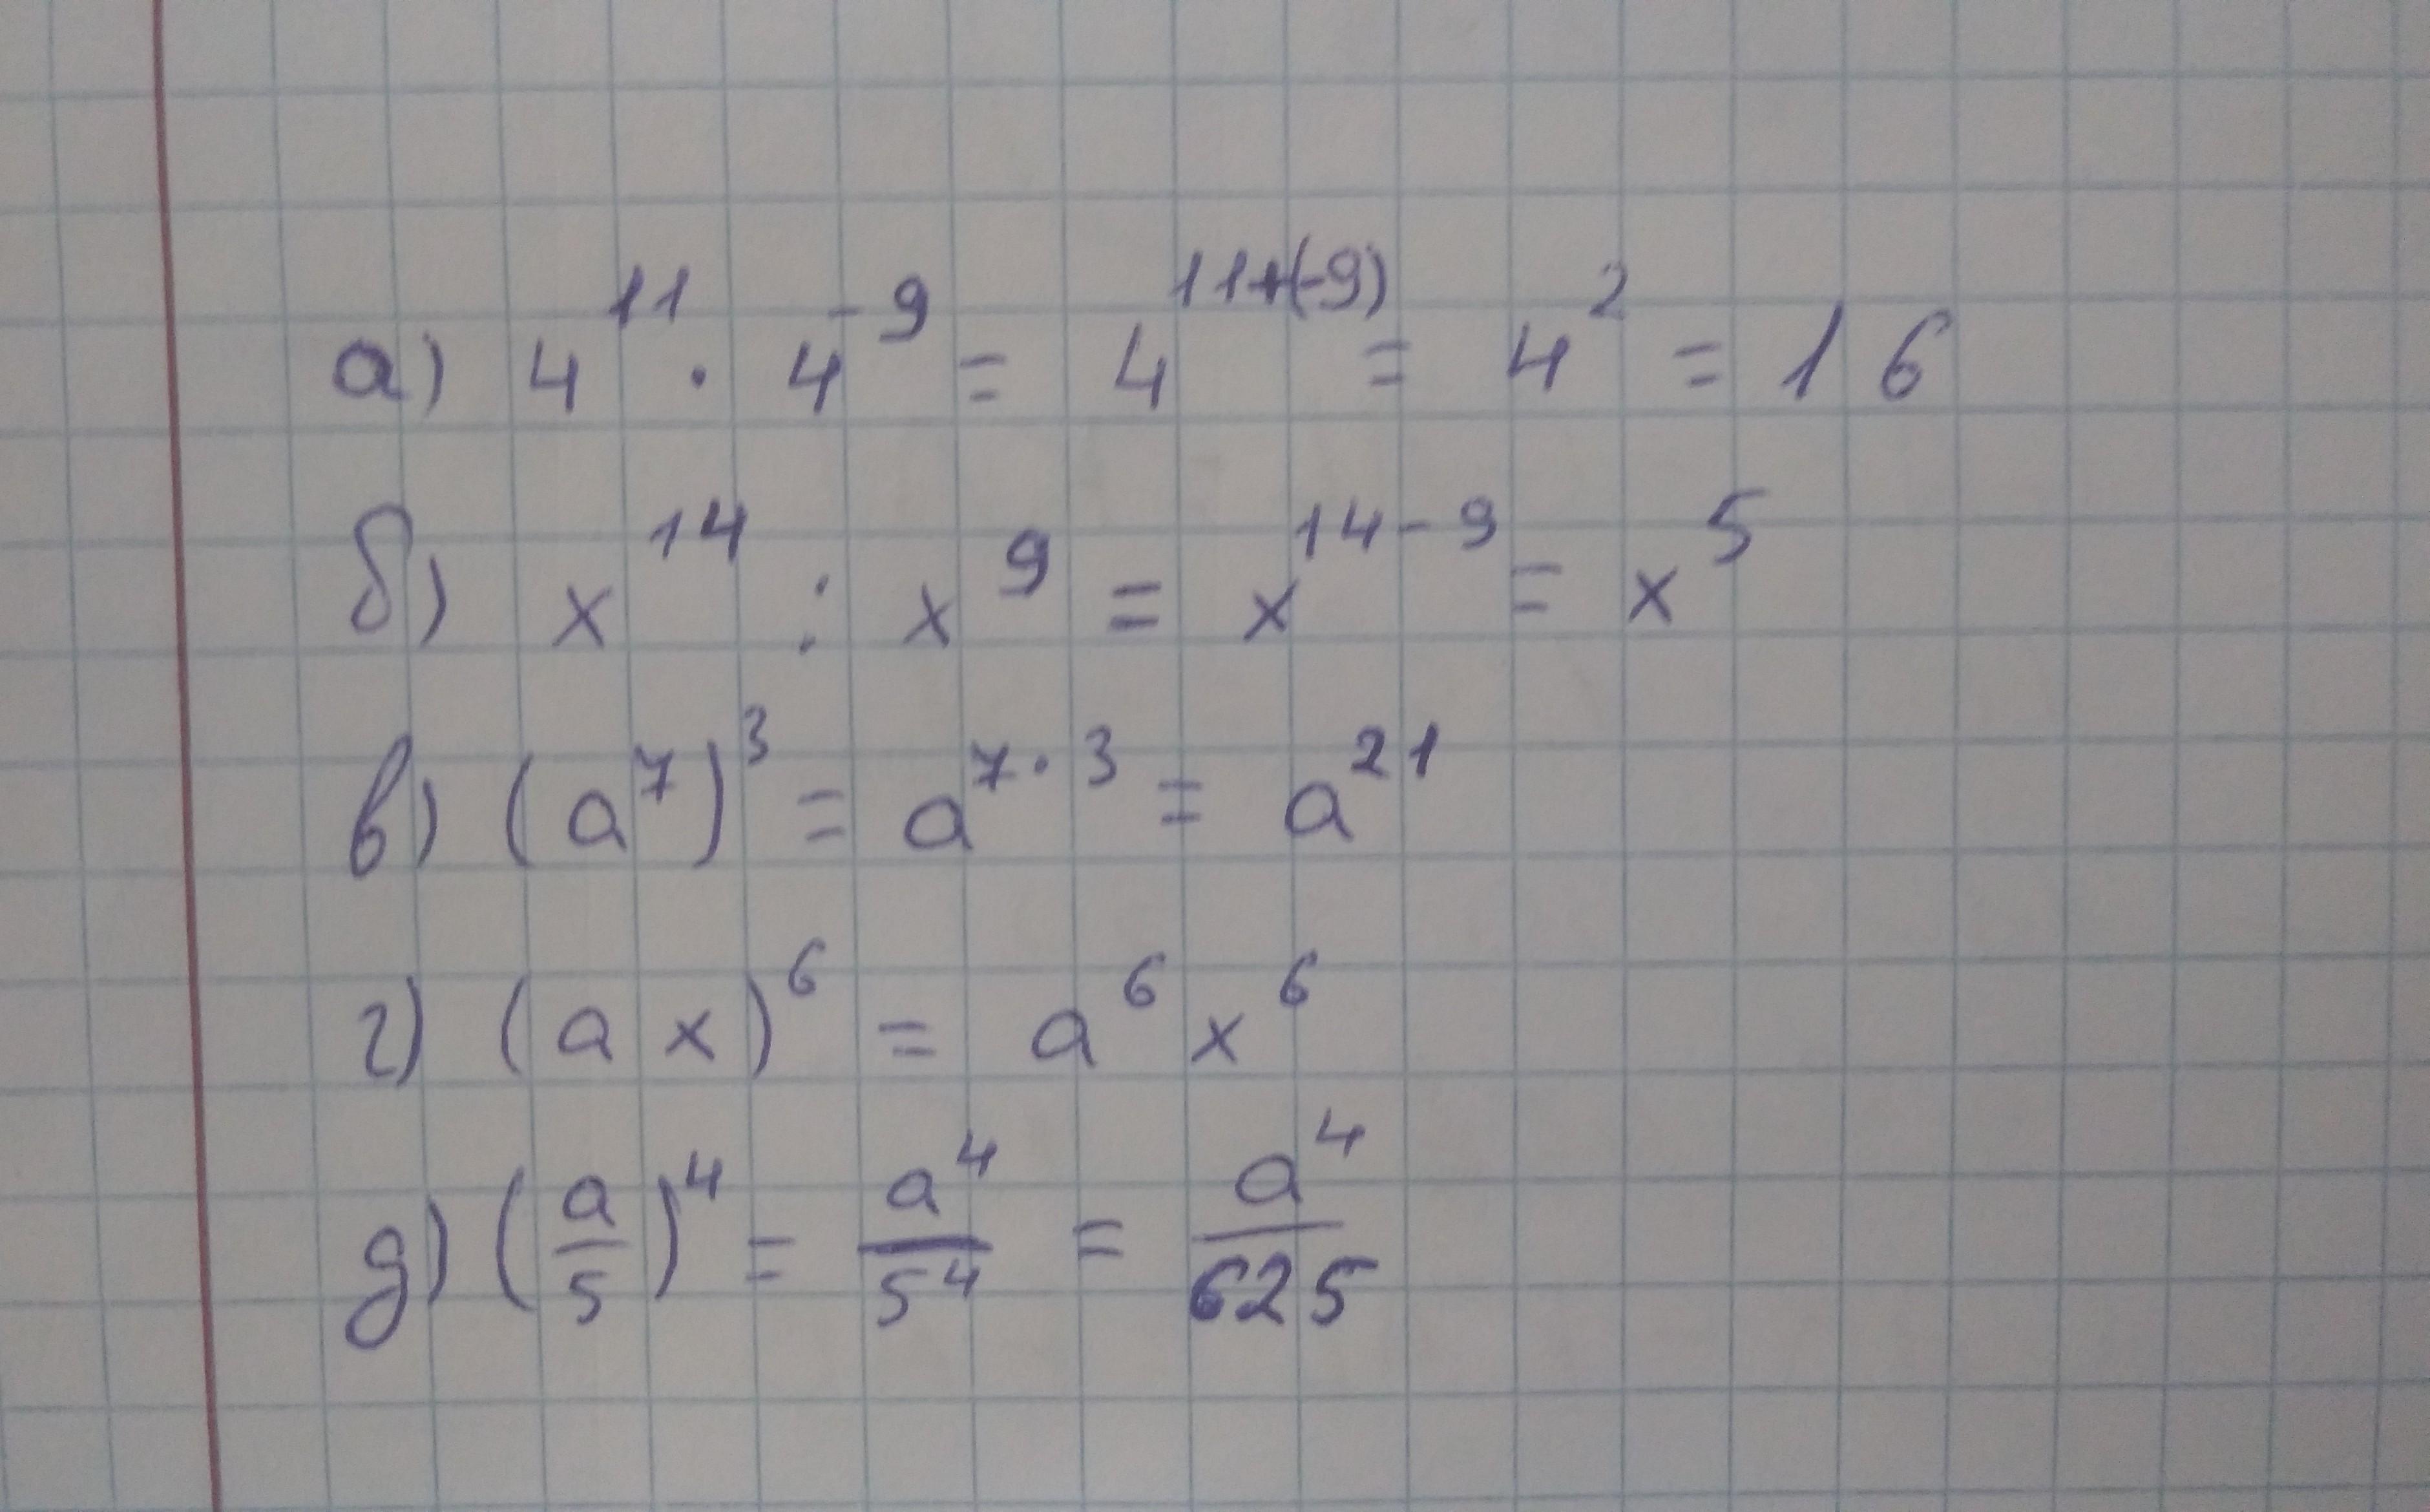 а) 4¹¹ · 4⁻⁹ = 4¹¹⁺⁽⁻⁹⁾ = 4² = 16
б) x¹⁴ : x⁹ = x¹⁴⁻⁹ = x⁵
в) (a⁷)³ = a^(7·3) = a²¹
г) (ax)⁶ = a⁶x⁶
д) (a/5)⁴ = a⁴/5⁴ = a⁴/625